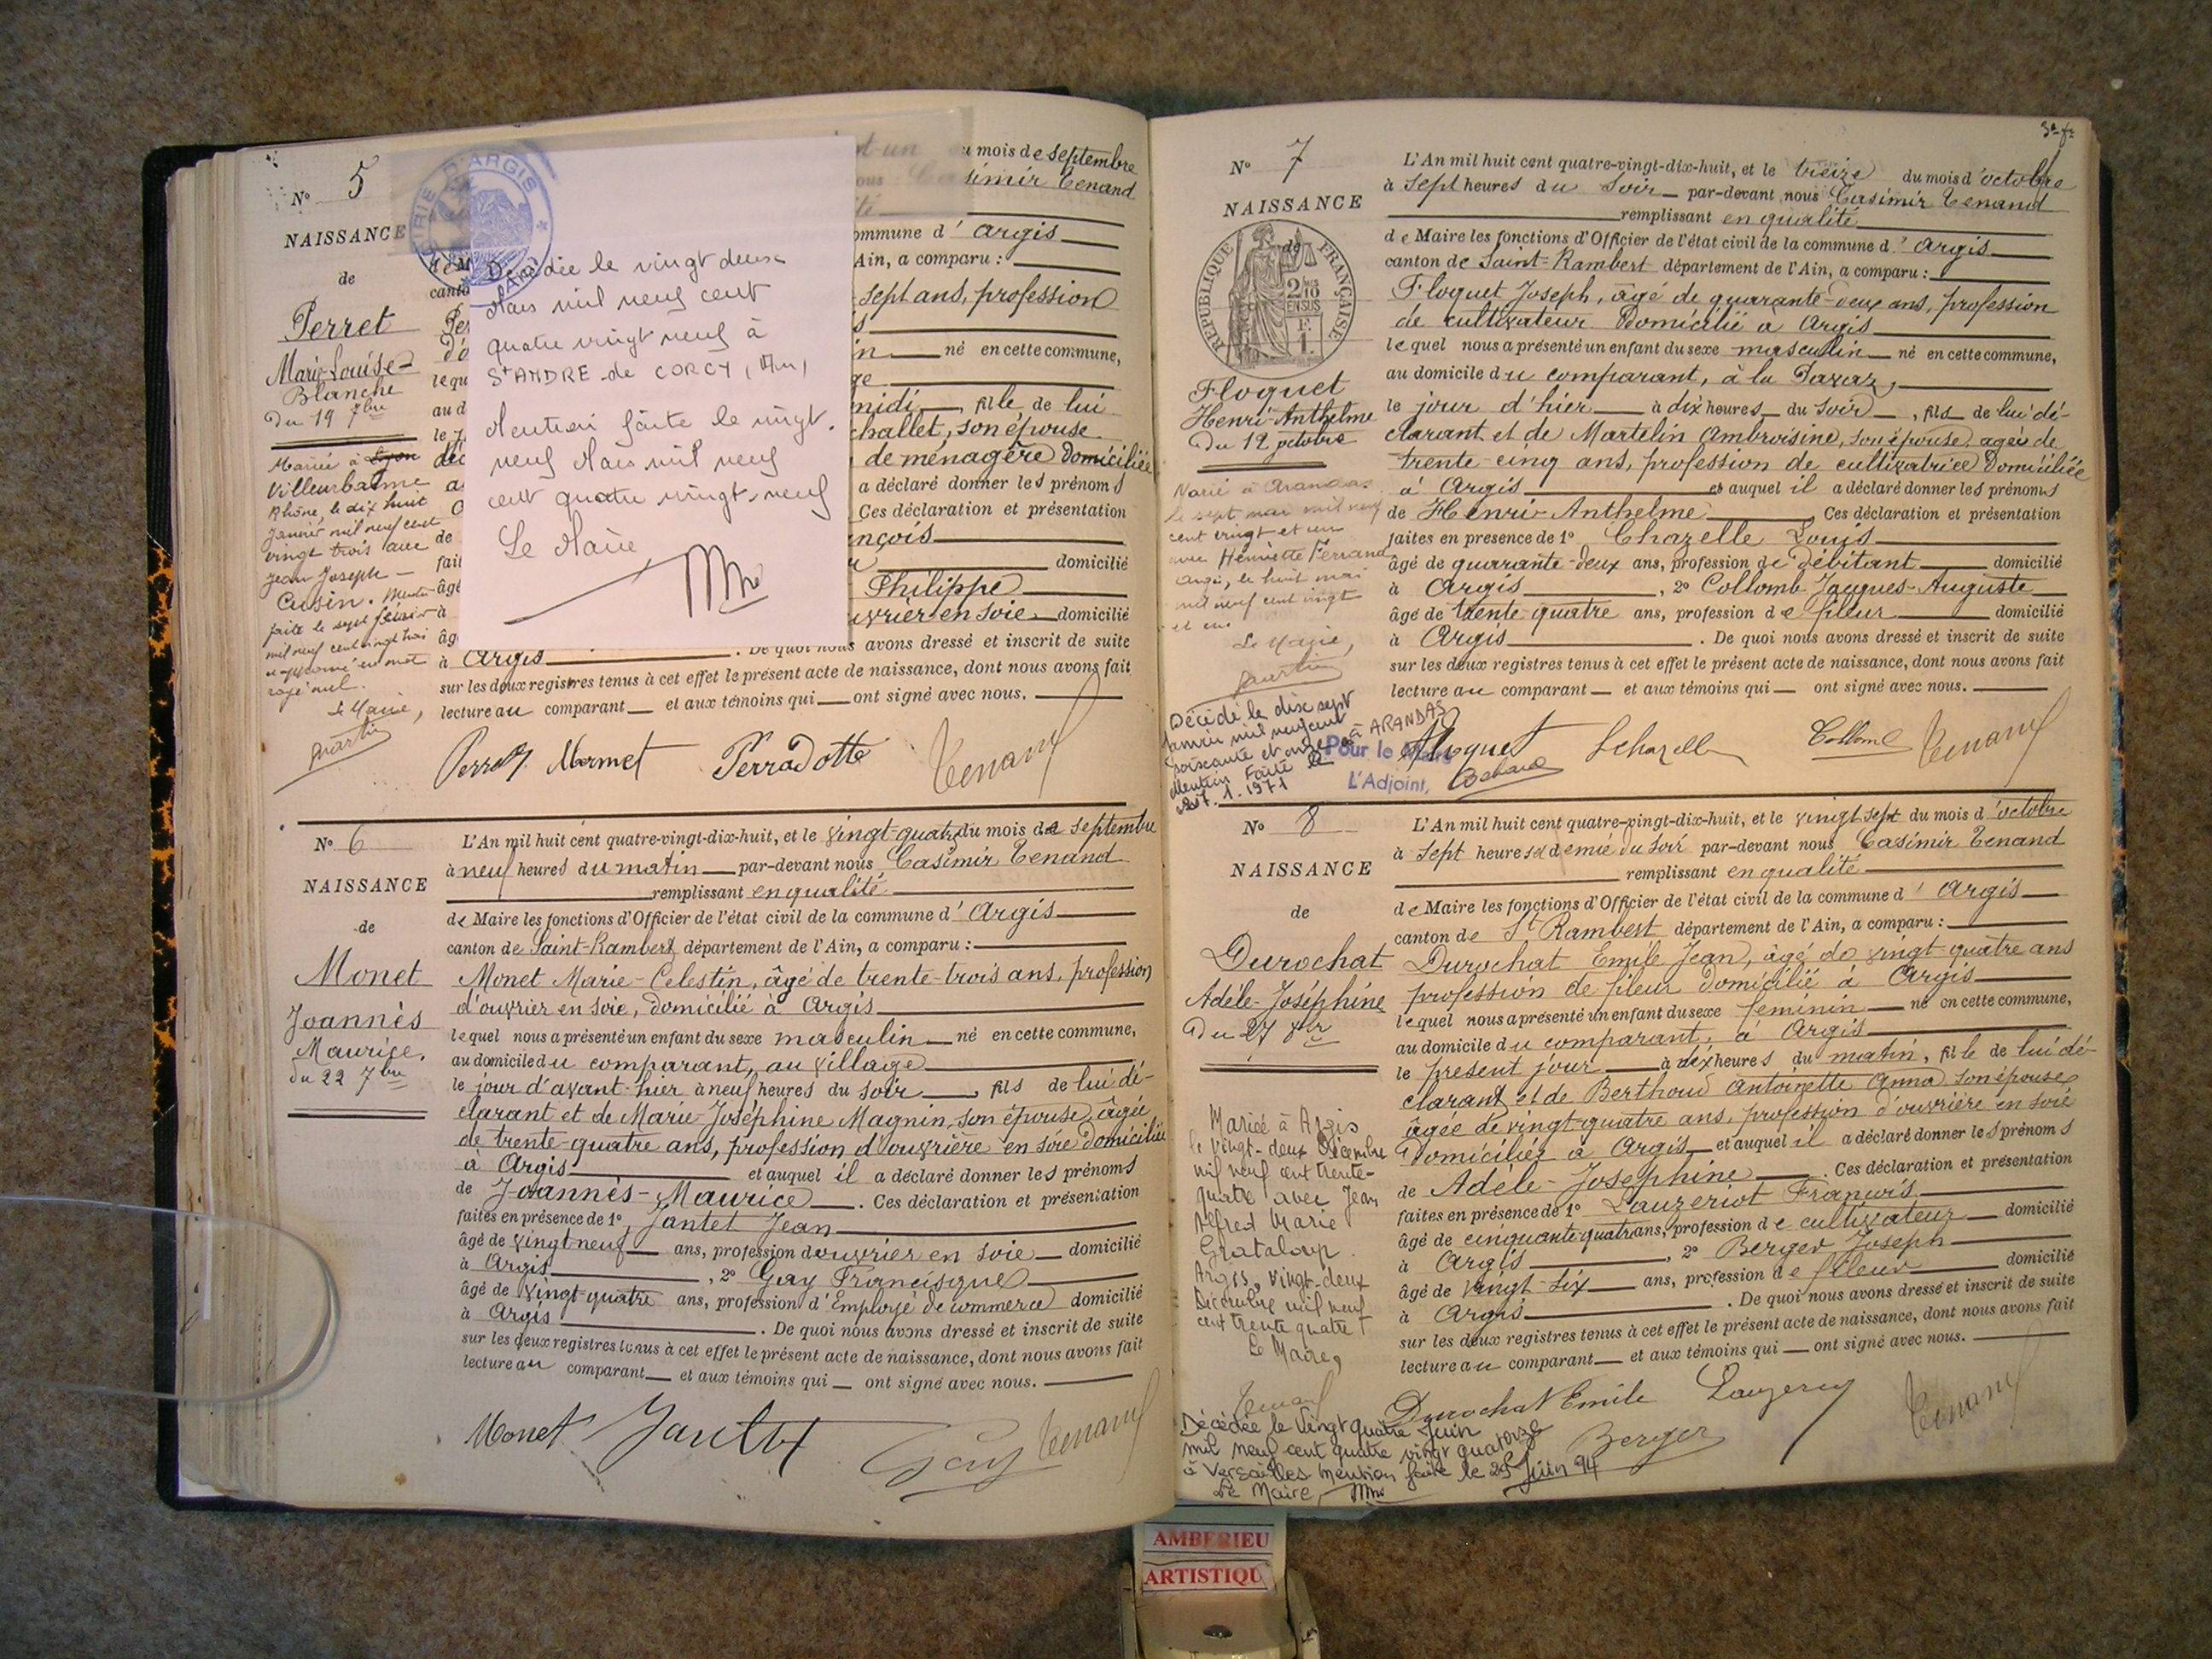 N° 5
NAISSANCE
de
Perret
Marie-Louise-
Blanche
Du 19 7bre
Mariée à Lyon
Villeurbanne
Rhône, le dix huit
Janvier mil neuf cent
vingt trois avec
Jean Joseph
Cusin. Mention
faite le sept février
mil neuf cent vingt trois
rayé nul.
Le Maire,
MAIRIE D'ARGIS
Décédée le vingt deux
Mars mil neuf cent
quatre vingt neuf à
St ANDRE de CORCY, (Ain)
Mention faite le vingt
neuf Mars mil neuf
cent quatre vingt-neuf
Le Maire
u mois de septembre
simir Tenand
ommune d'Argis
Ain, a comparu :
sept ans, profession
né en cette commune,
midi, fille de lui
challet, son épouse
de ménagère domiciliée
a déclaré donner les prénoms
Ces déclaration et présentation
nçois
domicilié
Philippe
uvrier en soie domicilié
De quoi nous avons dressé et inscrit de suite
à Argis
sur les deux registres tenus à cet effet le présent acte de naissance, dont nous avons fait
lecture au comparant et aux témoins qui ont signé avec nous.
Perret Mermet Perradotte Tenand
N° 6
NAISSANCE
de
Monet
Joannès
Maurice.
du 22 7bre
L'An mil huit cent quatre-vingt-dix-huit, et le vingt-quatre du mois de septembre
à neuf heures du matin par-devant nous Casimir Tenand
remplissant en qualité
de Maire les fonctions d'Officier de l'état civil de la commune d'Argis
canton de Saint-Rambert département de l'Ain, a comparu :
Monet Marie-Celestin, âgé de trente-trois ans, profession
d'ouvrier en soie, domicilié à Argis
lequel nous a présenté un enfant du sexe masculin né en cette commune,
au domicile du comparant, au village
le jour d'avant-hier à neuf heures du soir, fils de lui dé-
clarant et de Marie-Joséphine Magnin, son épouse, âgée
de trente-quatre ans, profession d'ouvrière en soie domiciliée
à Argis et auquel il a déclaré donner les prénoms
de Joannès-Maurice. Ces déclaration et présentation
faites en présence de 1° Jantet Jean
âgé de vingt neuf ans, profession d'ouvrier en soie domicilié
à Argis, 2° Gay Francisque
âgé de vingt-quatre ans, profession d'Employé de commerce domicilié
à Argis. De quoi nous avons dressé et inscrit de suite
sur les deux registres tenus à cet effet le présent acte de naissance, dont nous avons fait
lecture au comparant et aux témoins qui ont signé avec nous.
Monet Jantet Gay Tenand
N° 7
NAISSANCE
de
REPUBLIQUE FRANÇAISE
2/10 EN SUS
Floquet
Henri-Anthelme
Du 12 octobre
Marié à Arandas
le sept mai mil neuf
cent vingt et un
avec Henriette Ferrand
Argis, le huit mai
mil neuf cent vingt
et un
Le Maire,
Décédé le dix sept
Janvier mil neuf cent
soixante et onze à ARANDAS
Mention Faite le
Pour le Maire
L'Adjoint,
L'An mil huit cent quatre-vingt-dix-huit, et le treize du mois d'octobre
à sept heures du soir par-devant nous Casimir Tenand
remplissant en qualité
de Maire les fonctions d'Officier de l'état civil de la commune d'Argis
canton de Saint-Rambert département de l'Ain, a comparu :
Floquet Joseph, âgé de quarante-deux ans, profession
de cultivateur domicilié à Argis
lequel nous a présenté un enfant du sexe masculin né en cette commune,
au domicile du comparant, à la
le jour d'hier à dix heures du soir, fils de lui dé-
clarant et de Martelin Ambroisine, son épouse, agée de
trente-cinq ans, profession de cultivatrice domiciliée
à Argis et auquel il a déclaré donner les prénoms
de Henri-Anthelme Ces déclaration et présentation
faites en presence de 1° Chazelle Louis
âgé de quarante-deux ans, profession de débitant domicilié
à Argis, 2° Collomb Jacques-Auguste
âgé de trente quatre ans, profession de fileur domicilié
à Argis. De quoi nous avons dressé et inscrit de suite
sur les deux registres tenus à cet effet le présent acte de naissance, dont nous avons fait
lecture au comparant et aux témoins qui ont signé avec nous.
Floquet Lchazelle Collomb Tenand
N° 8
NAISSANCE
de
Durochat
Adèle-Joséphine
Du 27 8bre
Mariée à Argis
le vingt-deux Décembre
mil neuf cent trente-
quatre avec Jean
Alfred Marie
Grataloup.
Argis, vingt-deux
Décembre mil neuf
cent trente quatre
Le Maire,
Tenand
Décédée le Vingt quatre Juin
mil neuf cent quatre vingt quatorze
à Versailles Mention faite le 29 Juin 94
Le Maire,
L'An mil huit cent quatre-vingt-dix-huit, et le vingt sept du mois d'octobre
à sept heures et demie du soir par-devant nous Casimir Tenand
remplissant en qualité
de Maire les fonctions d'Officier de l'état civil de la commune d'Argis
canton de St Rambert département de l'Ain, a comparu :
Durochat Emile Jean, âgé de vingt-quatre ans
profession de fileur domicilié à Argis
lequel nous a présenté un enfant du sexe feminin né en cette commune,
au domicile du comparant, à Argis
le présent jour à dix heures du matin, fille de lui dé-
clarant et de Berthoud Antoinette Anna son épouse
âgée de vingt-quatre ans, profession d'ouvrière en soie
Domiciliée à Argis et auquel il a déclaré donner les prénoms
de Adèle-Josephine. Ces déclaration et présentation
faites en présence de 1° Lauzeriot François
âgé de cinquante quatre ans, profession de cultivateur domicilié
à Argis, 2° Berger Joseph
âgé de Vingt-six ans, profession de fileur domicilié
à Argis. De quoi nous avons dressé et inscrit de suite
sur les deux registres tenus à cet effet le présent acte de naissance, dont nous avons fait
lecture au comparant et aux témoins qui ont signé avec nous.
Durochat Emile
Berger Tenand
AMBERIEU
ARTISTIQU